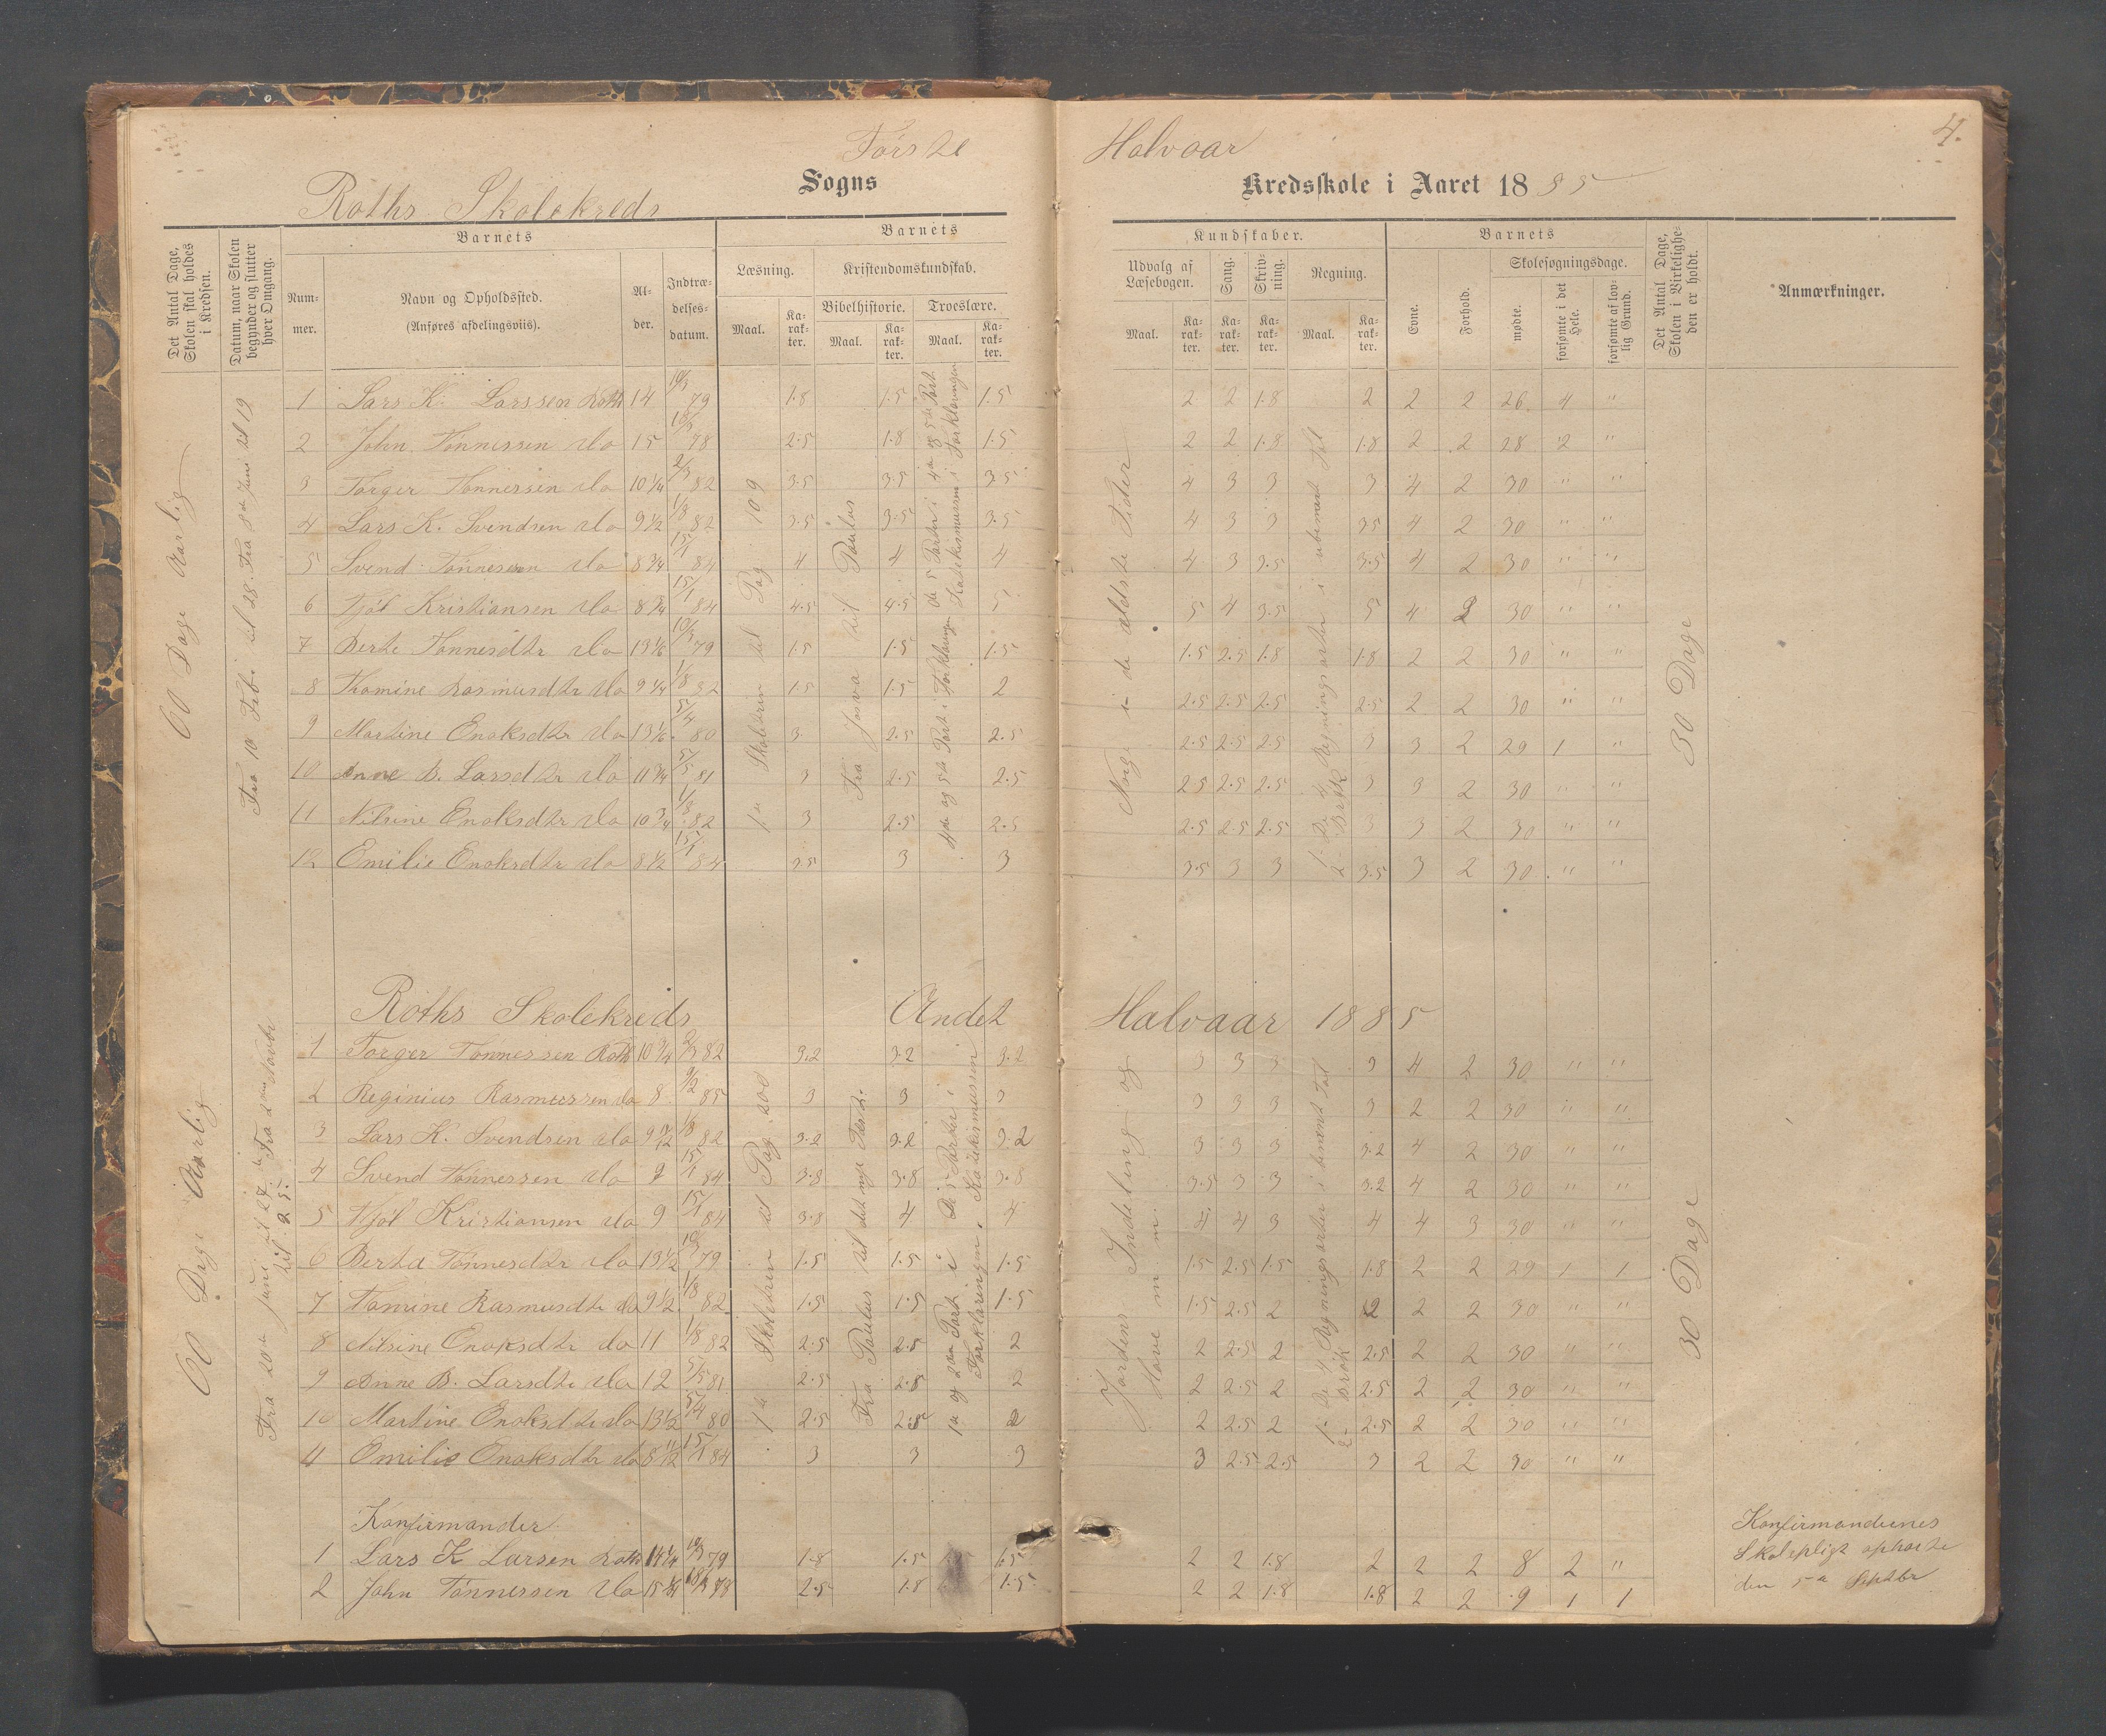 Første Halvaar 4.
Roths Skolekreds Sogns Kredsskole i Aaret 1885
Det Antal Dage, Skolen skal holdes i Kredsen.
Datum, naar Skolen begynder og slutter hver Omgang.
Barnets
Num-mer.
Navn og Opholdssted.
(Anføres afdelingsviis).
Al-der.
Indtræ-delses-datum.
Barnets Kundskaber.
Læsning.
Maal. Ka-rak-ter.
Kristendomskundskab.
Bibelhistorie. Troeslære.
Maal. Ka-rak-ter. Maal. Ka-rak-ter.
Udvalg af Læsebogen.
Maal. Ka-rak-ter.
Sang. Ka-rak-ter.
Skriv-ning. Ka-rak-ter.
Regning.
Maal. Ka-rak-ter.
Barnets
Evne. Forhold.
Skolesøgningsdage.
mødte. forsømte i det Hele. forsømte af lov-lig Grund.
Det Antal Dage, Skolen i Virkelighe-den er holdt.
Anmærkninger.
60 Dage Aarlig
1 Lars K. Larssen Roth 14 10/3 79 1.8 1.5 1.5 2 2 1.8 2 2 2 26 4 "
2 John Tønnessen do 15 78 2.5 1.8 1.5 2 2 1.8 1.8 2 2 28 2 "
3 Torger Tønnessen do 10 1/4 2/3 82 3.5 3.5 3.5 4 3 3 3 4 2 30 " "
4 Lars K. Svendsen do 9 1/2 1/8 82 3.5 3.5 3.5 4 3 3 3.5 4 2 30 " "
5 Svend Tønnessen do 8 3/4 15/1 84 4 4 4 4 3 3.5 3.5 4 2 30 " "
6 Kristiansen do 8 3/4 15/1 84 4.5 4.5 5 5 4 3.5 5 4 2 30 " "
7 Berte Tønnesdtr do 13 1/6 10/3 79 1.5 1.5 1.5 1.5 2.5 1.8 1.8 2 2 30 " "
8 Thomine Rasmusdtr do 9 1/4 1/8 82 1.5 1.5 2 2.5 2.5 2.5 2.5 2 2 30 " "
9 Martine Enoksdtr do 13 1/6 5/4 80 3 2.5 2.5 2.5 2.5 2.5 3 3 2 29 1 "
10 Anne B. Larsdtr do 11 3/4 5/5 81 3 2.5 2.5 2.5 2.5 2.5 3 3 2 30 " "
11 Nilsine Enoksdtr do 10 3/4 1/8 82 3 2.5 2.5 2.5 2.5 2.5 3 3 2 30 " "
12 Emilie Enoksdtr do 8 1/2 15/1 84 3.5 3 3 3.5 3 3 3.5 3 2 30 " "
1ste Skoletrin til Pag 109
Fra Josva til Paulus
Noge i de ældste Tider
30 Dage
Roths Skolekreds Andet Halvaar 1885
60 Dage Aarlig
1 Torger Tønnessen Roth 10 3/4 2/3 82 3.2 3.2 3.2 3 3 3 3 4 2 30 " "
2 Reginius Rasmussen do 8 9/2 85 3 3 3 3 3 3 3 2 2 30 " "
3 Lars K. Svendsen do 9 11/12 1/8 82 3.2 3.2 3.2 3 3 3 3.2 4 2 30 " "
4 Svend Tønnessen do 9 15/1 84 3.8 3.8 3.8 3.5 3 3 3.2 4 2 30 " "
5 Kristiansen do 9 15/1 84 3.8 4 4 4 4 3 4 4 3 30 " "
6 Berta Tønnesdtr do 13 1/2 79 1.5 1.5 1.5 1.5 2.5 1.5 1.8 2 2 29 1 1
7 Tomine Rasmusdtr do 9 1/2 1/8 82 1.5 1.5 1.5 1.5 2.5 2 2 2 2 30 " "
8 Nilsine Enoksdtr do 11 1/8 82 2.5 2.5 2 2 2.5 2 2.5 2 2 30 " "
9 Anne B. Larsdtr do 12 5/5 81 2.5 2.8 2 2 2.5 2 2.5 2 2 30 " "
10 Martine Enoksdtr do 13 1/2 5/4 80 2.5 2.5 2 2 2.5 2 2.5 2 2 30 " "
11 Emilie Enoksdtr do 8 11/12 15/1 84 3 3 3 3 2.5 2.5 3 2 2 30 " "
1ste Skoletrin til Pag 200
Fra Paulus til det nye Teste.
Jordens Indeling og
30 Dage
Konfirmander
1 Lars K Larsen Roth 14 1/4 10/3 79 1.8 1.5 1.5 2 2 1.8 2 2 2 8 2 "
2 John Tønnessen do 15 1/4 78 2.5 1.8 1.5 2 2 1.8 1.8 2 2 9 1 1
Konfirmandernes
Skolepligt ophørte
den 5te Septbr